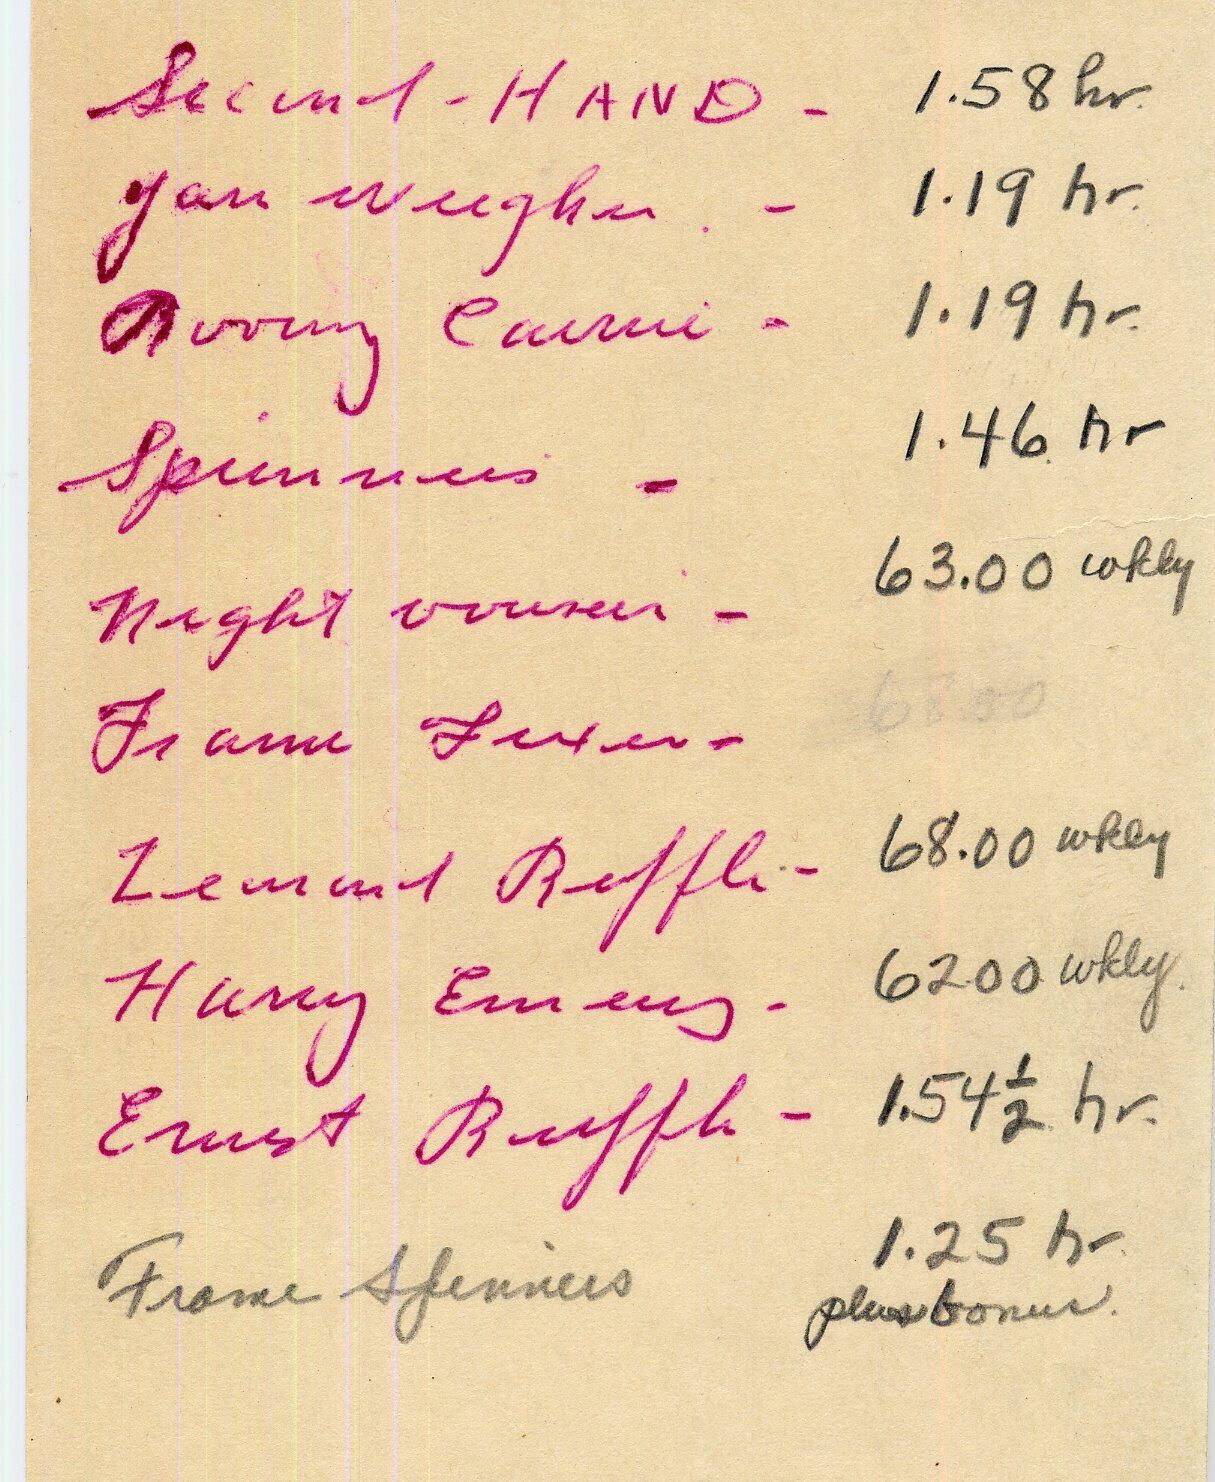 Second-HAND - 1.58 hr.
Yarn weigher. - 1.19 hr.
Roving Carrie - 1.19 hr.
Spinners - 1.46 hr
Night - 63.00 wkly
Frame Fixer - 68.00
Leonard Riffle - 68.00 wkly
Harry Emery - 6200 wkly.
Ernest Riffle - 1.54½ hr.
Frame Spinners 1.25 hr.
plus bonus.